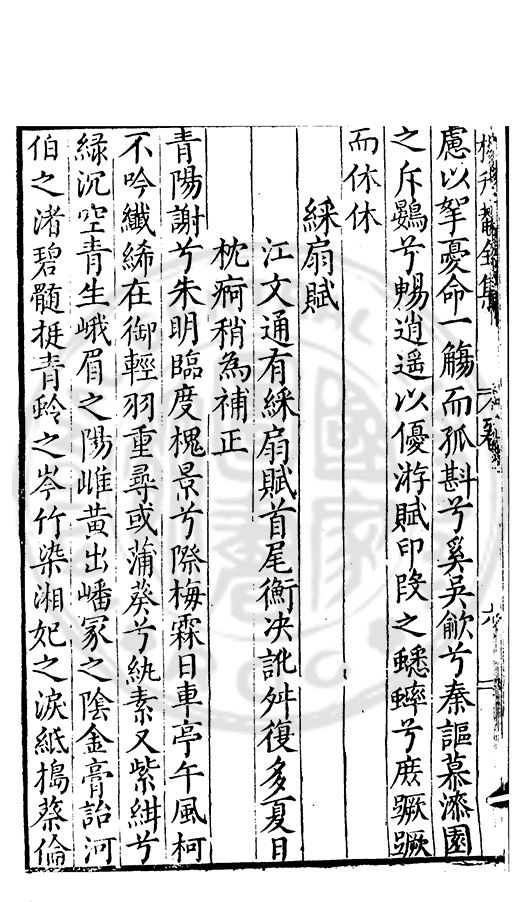 楊升菴全集
慮以挐憂命一觴而孤斟兮奚吳歈兮秦謳慕漆園
之斥鷃兮暢逍遥以優游賦印段之蟋蟀兮庶蹶蹶
而休休
綵扇賦
江文通有綵扇賦首尾衡决訛舛復多夏日
枕疴稍為補正
青陽謝兮朱明臨度槐景兮際梅霖日車亭午風柯
不吟纖絺在御輕羽重尋或蒲葵兮紈素又紫紺兮
緑沉空青生峨眉之陽雌黃出嶓冢之陰金膏詒河
伯之渚碧髓挺青蛉之岑竹染湘妃之淚紙搗蔡倫